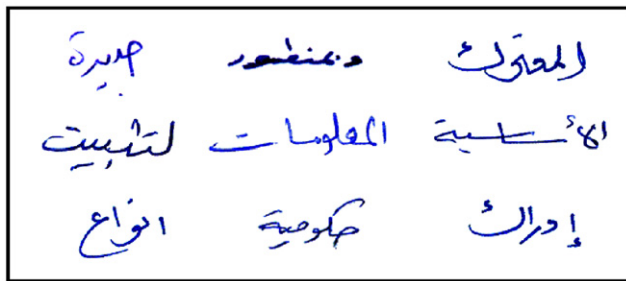 المعترك وبمنظور جديرة
الأساسية المعلومات لتثبيت
إدراك حكومية انواع